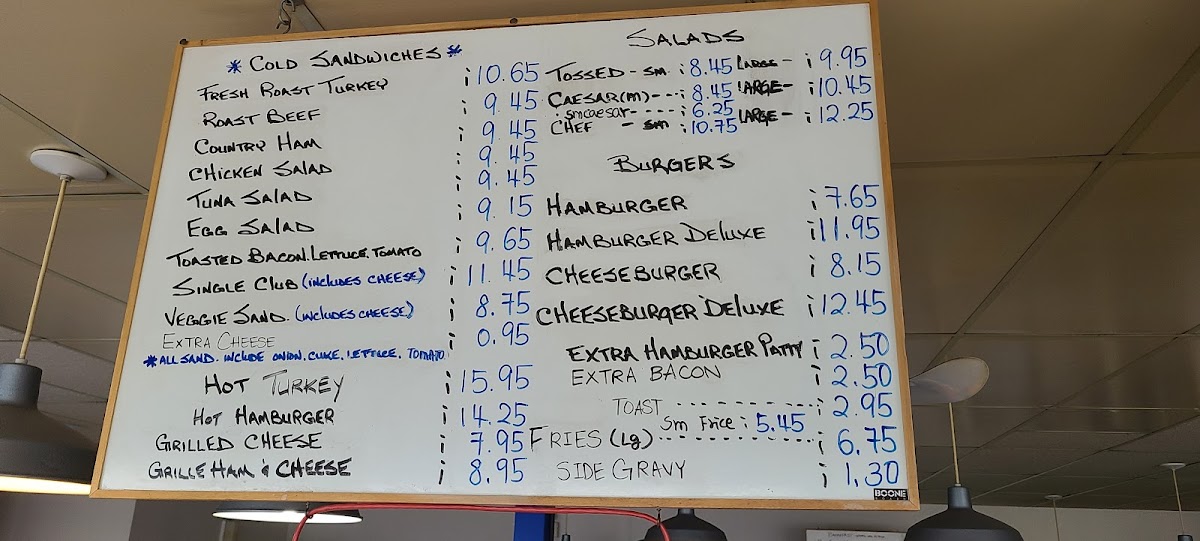 * COLD SANDWICHES *
FRESH ROAST TURKEY ¡ 10.65
ROAST BEEF ¡ 9.45
COUNTRY HAM ¡ 9.45
CHICKEN SALAD ¡ 9.45
TUNA SALAD ¡ 9.45
EGG SALAD ¡ 9.15
TOASTED BACON, LETTUCE, TOMATO ¡ 9.65
SINGLE CLUB (INCLUDES CHEESE) ¡ 11.45
VEGGIE SAND. (INCLUDES CHEESE) ¡ 8.75
EXTRA CHEESE ¡ 0.95
* ALL SAND. INCLUDE ONION, CUKE, LETTUCE, TOMATO
HOT TURKEY ¡ 15.95
HOT HAMBURGER ¡ 14.25
GRILLED CHEESE ¡ 7.95
GRILLE HAM & CHEESE ¡ 8.95
SALADS
TOSSED - SM ¡ 8.45 LARGE - ¡ 9.95
CAESAR(M) --- ¡ 8.45 LARGE - ¡ 10.45
sm caesar ---- ¡ 6.25
CHEF - SM ¡ 10.75 LARGE - ¡ 12.25
BURGERS
HAMBURGER ¡ 7.65
HAMBURGER DELUXE ¡ 11.95
CHEESEBURGER ¡ 8.15
CHEESEBURGER DELUXE ¡ 12.45
EXTRA HAMBURGER PATTY ¡ 2.50
EXTRA BACON ¡ 2.50
TOAST ---------- ¡ 2.95
Sm Frice ¡ 5.45
FRIES (Lg) ------------ ¡ 6.75
SIDE GRAVY ¡ 1.30
BOONE